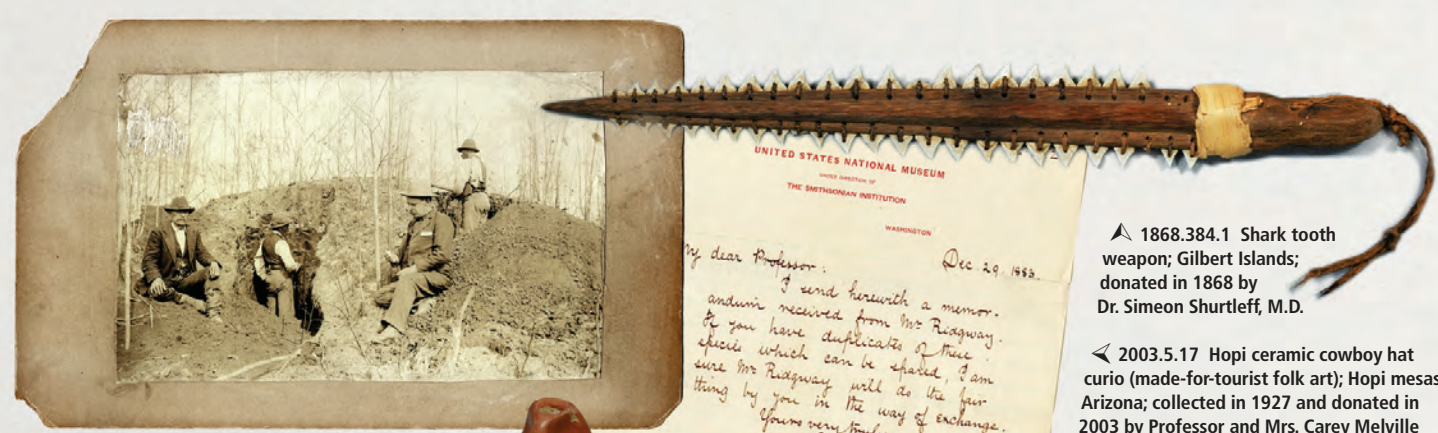 UNITED STATES NATIONAL MUSEUM
UNDER DIRECTION OF
THE SMITHSONIAN INSTITUTION
WASHINGTON
Dec. 29. 1883.
My dear Professor:
I send herewith a memor-
andum received from Mr Ridgway.
If you have duplicates of these
species which can be spared, I am
sure Mr Ridgway will do the fair
thing by you in the way of exchange.
Yours very truly
1868.384.1 Shark tooth
weapon; Gilbert Islands;
donated in 1868 by
Dr. Simeon Shurtleff, M.D.
2003.5.17 Hopi ceramic cowboy hat
curio (made-for-tourist folk art); Hopi mesas
Arizona; collected in 1927 and donated in
2003 by Professor and Mrs. Carey Melville